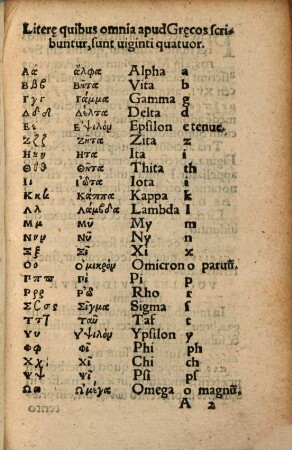 Literę quibus omnia apud Gręcos scri-
buntur, sunt uiginti quatuor.
Αα ἄλφα Alpha a
Βϐβ Βῆτα Vita b
Γγ Γάμμα Gamma g
Δδ Δέλτα Delta d
Εε Ἐψιλόν Epsilon e tenue.
Ζζ Ζῆτα Zita z
Ηη Ητα Ita i
Θϑθ Θῆτα Thita th
Ιι Ἰῶτα Iota i
Κκ Κάππα Kappa k
Λλ Λάμβδα Lambda l
Μμ Μῦ My m
Νν Νῦ Ny n
Ξξ Ξῖ Xi x
Οο Ὀμικρόν Omicron o paruū.
Ππϖ Πῖ Pi p
Ρρ Ῥῶ Rho r
ΣCσς Σῖγμα Sigma s
Ττ Ταῦ Taf t
Υυ Υψιλόν Ypsilon y
Φφ Φῖ Phi ph
Χχ Χῖ Chi ch
Ψψ Ψῖ Psi ps
Ωω Ωμέγα Omega o magnū.
A 2